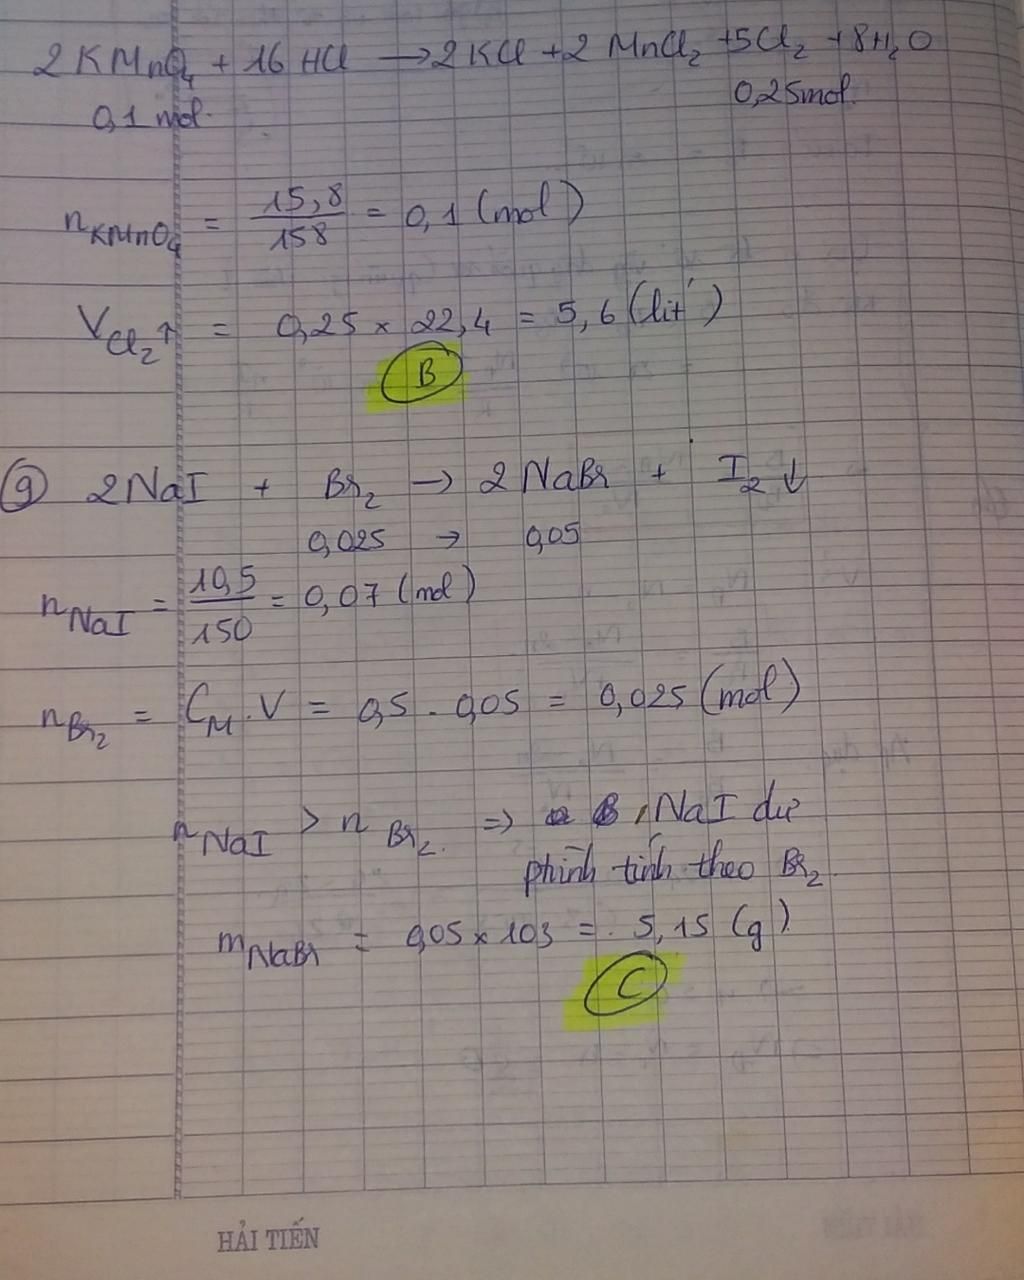 2KMnO₄ + 16 HCl → 2 KCl + 2 MnCl₂ + 5Cl₂ + 8H₂O
0,1 mol. 0,25mol.
nKMnO₄ = 15,8/158 = 0,1 (mol)
VCl₂↑ = 0,25 × 22,4 = 5,6 (lít)
B
9 2NaI + Br₂ → 2 NaBr + I₂ ↓
0,025 → 0,05
nNaI = 10,5/150 = 0,07 (mol)
nBr₂ = CM.V = 0,5 . 0,05 = 0,025 (mol)
nNaI > nBr₂. ⇒ NaI dư
tính theo Br₂.
mNaBr = 0,05 × 103 = 5,15 (g).
C
HẢI TIẾN